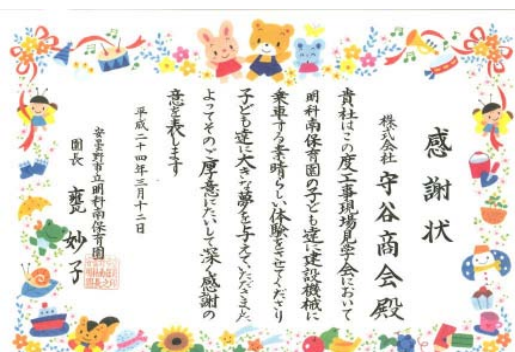 感謝状
株式会社 守谷商会殿
貴社はこの度工事現場見学会において
明科南保育園の子ども達に建設機械に
乗車する素晴らしい体験をさせてくださり
子ども達に大きな夢を与えていただきました
よってそのご厚意にたいして深く感謝の
意を表します
平成二十四年三月十二日
安曇野市立明科南保育園
園長 甕 妙子